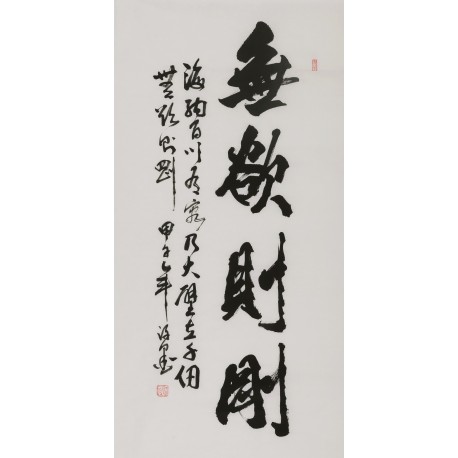 無欲則剛
海納百川有容乃大壁立千仞
無欲則剛 甲午年